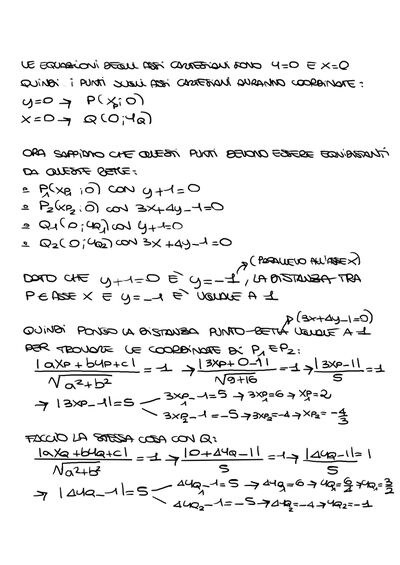 LE EQUAZIONI DEGLI ASSI CARTESIANI SONO Y=0 E X=0
QUINDI I PUNTI SUGLI ASSI CARTESIANI AVRANNO COORDINATE:
y=0 → P(xₚ; 0)
x=0 → Q(0; yQ)
ORA SAPPIAMO CHE QUESTI PUNTI DEVONO ESSERE EQUIDISTANTI
DA QUESTE RETTE:
P₁(xP₁; 0) CON y+1=0
P₂(xP₂; 0) CON 3x+4y-1=0
Q₁(0; yQ₁) CON y+1=0
Q₂(0; yQ₂) CON 3x+4y-1=0
(PARALLELO ALL'ASSE X)
DATO CHE y+1=0 È y=-1, LA DISTANZA TRA
P E ASSE X E y=-1 È UGUALE A 1
(3x+4y-1=0)
QUINDI PONGO LA DISTANZA PUNTO-RETTA UGUALE A 1
PER TROVARE LE COORDINATE DI P₁ E P₂:
|axP+byP+c|/√(a²+b²) = 1 → |3xP+0-1|/√(9+16) = 1 → |3xP-1|/5 = 1
→ |3xP-1|=5 3xP₁-1=5 → 3xP₁=6 → xP₁=2
3xP₂-1=-5 → 3xP₂=-4 → xP₂=-4/3
FACCIO LA STESSA COSA CON Q:
|axQ+byQ+c|/√(a²+b²) = 1 → |0+4yQ-1|/5 = 1 → |4yQ-1|/5 = 1
→ |4yQ-1|=5 4yQ₁-1=5 → 4yQ₁=6 → yQ₁=6/4 → yQ₁=3/2
4yQ₂-1=-5 → 4yQ₂=-4 → yQ₂=-1